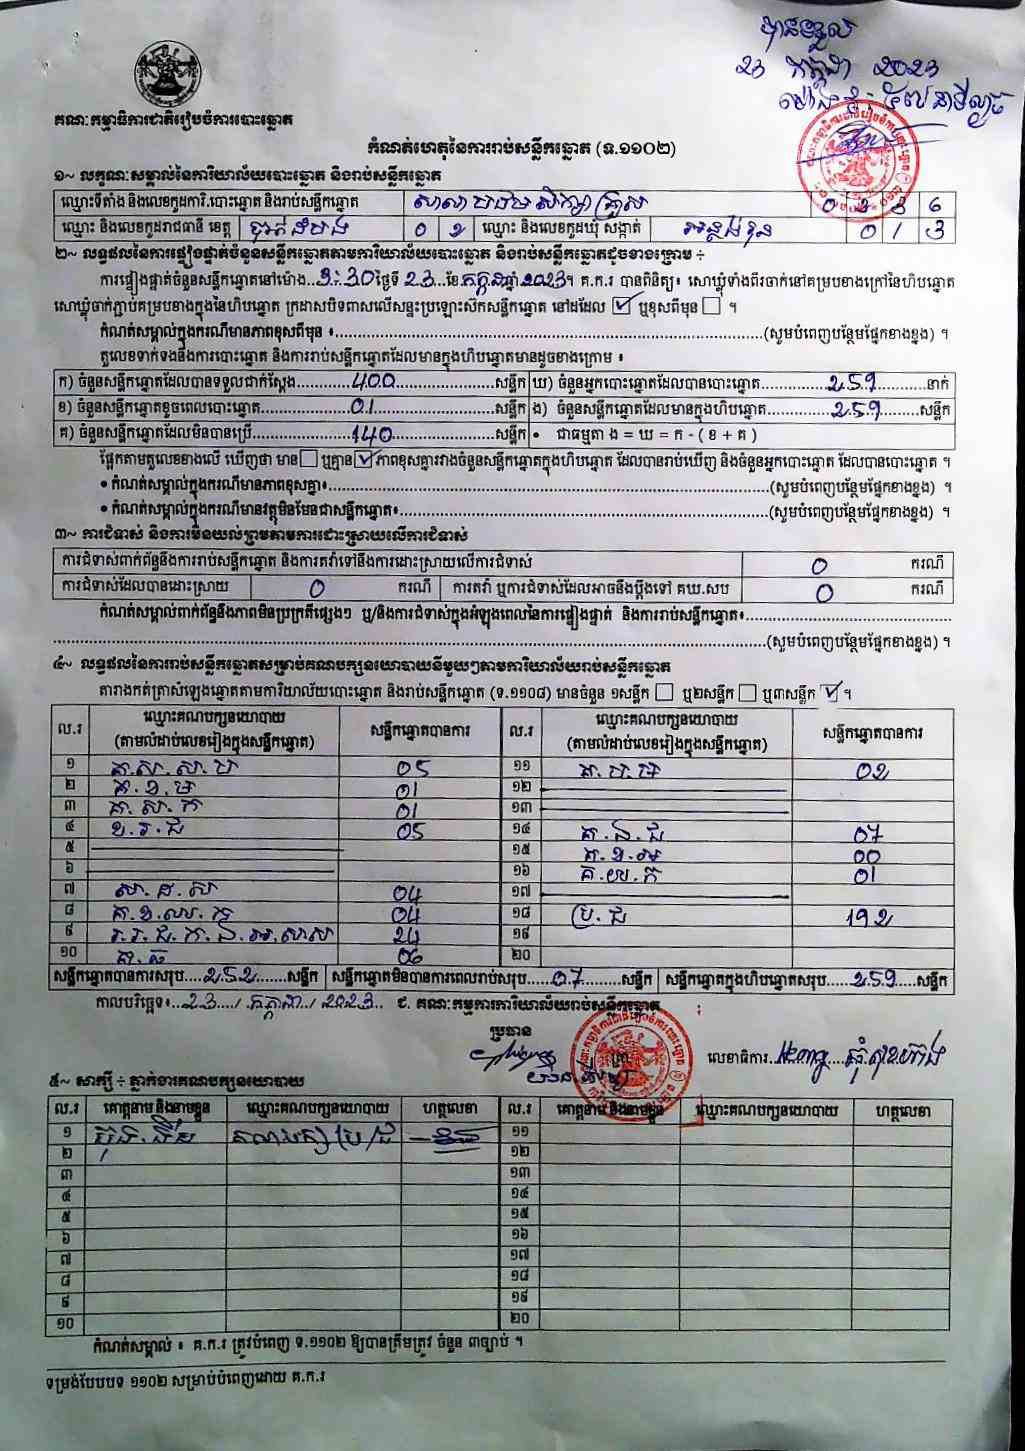 បានទទួល
23 កក្កដា 2023
គណៈកម្មាធិការជាតិរៀបចំការបោះឆ្នោត
កំណត់ហេតុនៃការរាប់សន្លឹកឆ្នោត (ទ.១១០២)
១~ លក្ខណៈសម្គាល់នៃការិយាល័យបោះឆ្នោត និងរាប់សន្លឹកឆ្នោត
ឈ្មោះទីតាំង និងលេខកូដការិ.បោះឆ្នោត និងរាប់សន្លឹកឆ្នោត សាលាបឋមសិក្សា គ្រួស 0 2 3 6
ឈ្មោះ និងលេខកូដរាជធានី ខេត្ត 0 2 ឈ្មោះ និងលេខកូដឃុំ សង្កាត់ អន្លង់រុន 0 1 3
២~ លទ្ធផលនៃការផ្ទៀងផ្ទាត់ចំនួនសន្លឹកឆ្នោតតាមការិយាល័យបោះឆ្នោត និងរាប់សន្លឹកឆ្នោតដូចខាងក្រោម ÷
ការផ្ទៀងផ្ទាត់ចំនួនសន្លឹកឆ្នោតនៅម៉ោង 3:30 ថ្ងៃទី 23 ខែ កក្កដា ឆ្នាំ 2023។ គ.ក.រ បានពិនិត្យ៖ សោឃ្លុំទាំងពីរចាក់នៅគម្របខាងក្រៅនៃហិបឆ្នោត
សោឃ្លុំចាក់ភ្ជាប់គម្របខាងក្នុងនៃហិបឆ្នោត ក្រដាសបិទពាសលើសន្ទះប្រឡោះស៊កសន្លឹកឆ្នោត នៅដដែល ☑ ឬខុសពីមុន ☐ ។
កំណត់សម្គាល់ក្នុងករណីមានភាពខុសពីមុន ៖ (សូមបំពេញបន្ថែមផ្នែកខាងខ្នង) ។
តួលេខទាក់ទងនឹងការបោះឆ្នោត និងការរាប់សន្លឹកឆ្នោតដែលមានក្នុងហិបឆ្នោតមានដូចខាងក្រោម ៖
ក) ចំនួនសន្លឹកឆ្នោតដែលបានទទួលជាក់ស្តែង 400 សន្លឹក ឃ) ចំនួនអ្នកបោះឆ្នោតដែលបានបោះឆ្នោត 259 នាក់
ខ) ចំនួនសន្លឹកឆ្នោតខូចពេលបោះឆ្នោត 01 សន្លឹក ង) ចំនួនសន្លឹកឆ្នោតដែលមានក្នុងហិបឆ្នោត 259 សន្លឹក
គ) ចំនួនសន្លឹកឆ្នោតដែលមិនបានប្រើ 140 សន្លឹក • ជាធម្មតា ង = ឃ = ក - ( ខ + គ )
ផ្អែកតាមតួលេខខាងលើ ឃើញថា មាន ☐ ឬគ្មាន ☑ ភាពខុសគ្នារវាងចំនួនសន្លឹកឆ្នោតក្នុងហិបឆ្នោត ដែលបានរាប់ឃើញ និងចំនួនអ្នកបោះឆ្នោត ដែលបានបោះឆ្នោត ។
• កំណត់សម្គាល់ក្នុងករណីមានភាពខុសគ្នា៖ (សូមបំពេញបន្ថែមផ្នែកខាងខ្នង) ។
• កំណត់សម្គាល់ក្នុងករណីមានវត្ថុមិនមែនជាសន្លឹកឆ្នោត៖ (សូមបំពេញបន្ថែមផ្នែកខាងខ្នង) ។
៣~ ការជំទាស់ និងការមិនយល់ព្រមតាមការដោះស្រាយលើការជំទាស់
ការជំទាស់ពាក់ព័ន្ធនឹងការរាប់សន្លឹកឆ្នោត និងការតវ៉ាទៅនឹងការដោះស្រាយលើការជំទាស់ 0 ករណី
ការជំទាស់ដែលបានដោះស្រាយ 0 ករណី ការតវ៉ា ឬការជំទាស់ដែលអាចនឹងប្តឹងទៅ គឃ.សប 0 ករណី
កំណត់សម្គាល់ពាក់ព័ន្ធនឹងភាពមិនប្រក្រតីផ្សេងៗ ឬ/និងការជំទាស់ក្នុងអំឡុងពេលនៃការផ្ទៀងផ្ទាត់ និងការរាប់សន្លឹកឆ្នោត៖
(សូមបំពេញបន្ថែមផ្នែកខាងខ្នង) ។
៤~ លទ្ធផលនៃការរាប់សន្លឹកឆ្នោតសម្រាប់គណបក្សនយោបាយនីមួយៗតាមការិយាល័យរាប់សន្លឹកឆ្នោត
តារាងកត់ត្រាសំឡេងឆ្នោតតាមការិយាល័យបោះឆ្នោត និងរាប់សន្លឹកឆ្នោត (ទ.១១០៨) មានចំនួន ១សន្លឹក ☐ ឬ២សន្លឹក ☐ ឬ៣សន្លឹក ☑ ។
ល.រ ឈ្មោះគណបក្សនយោបាយ (តាមលំដាប់លេខរៀងក្នុងសន្លឹកឆ្នោត) សន្លឹកឆ្នោតបានការ ល.រ ឈ្មោះគណបក្សនយោបាយ (តាមលំដាប់លេខរៀងក្នុងសន្លឹកឆ្នោត) សន្លឹកឆ្នោតបានការ
១ គ.ស.ស.ប 05 ១១ គ.ប.ម 02
២ គ.ខ.ម 01 ១២
៣ គ.ស.ក 01 ១៣
៤ ខ.រ.ជ 05 ១៤ គ.ឯ.ជ 07
៥ ១៥ គ.ខ.អ 00
៦ ១៦ គ.យ.ក 01
៧ ស.ជ.ស 04 ១៧
៨ គ.ខ.ឈ.ក 04 ១៨ ប្រ.ជ 192
៩ រ.រ.ជ.ក.ឯ.អ.សស 24 ១៩
១០ គ.ធ 06 ២០
សន្លឹកឆ្នោតបានការសរុប 252 សន្លឹក សន្លឹកឆ្នោតមិនបានការពេលរាប់សរុប 07 សន្លឹក សន្លឹកឆ្នោតក្នុងហិបឆ្នោតសរុប 259 សន្លឹក
កាលបរិច្ឆេទ៖ 23 / កក្កដា / 2023 ជ. គណៈកម្មការការិយាល័យរាប់សន្លឹកឆ្នោត
ប្រធាន
លេខាធិការ
៥~ សាក្សី ÷ ភ្នាក់ងារគណបក្សនយោបាយ
ល.រ គោត្តនាម និងនាមខ្លួន ឈ្មោះគណបក្សនយោបាយ ហត្ថលេខា ល.រ គោត្តនាម និងនាមខ្លួន ឈ្មោះគណបក្សនយោបាយ ហត្ថលេខា
១ គណបក្ស ប្រ/ជ ១១
២ ១២
៣ ១៣
៤ ១៤
៥ ១៥
៦ ១៦
៧ ១៧
៨ ១៨
៩ ១៩
១០ ២០
កំណត់សម្គាល់ ៖ គ.ក.រ ត្រូវបំពេញ ទ.១១០២ ឱ្យបានត្រឹមត្រូវ ចំនួន ៣ច្បាប់ ។
ទម្រង់បែបបទ ១១០២ សម្រាប់បំពេញដោយ គ.ក.រ